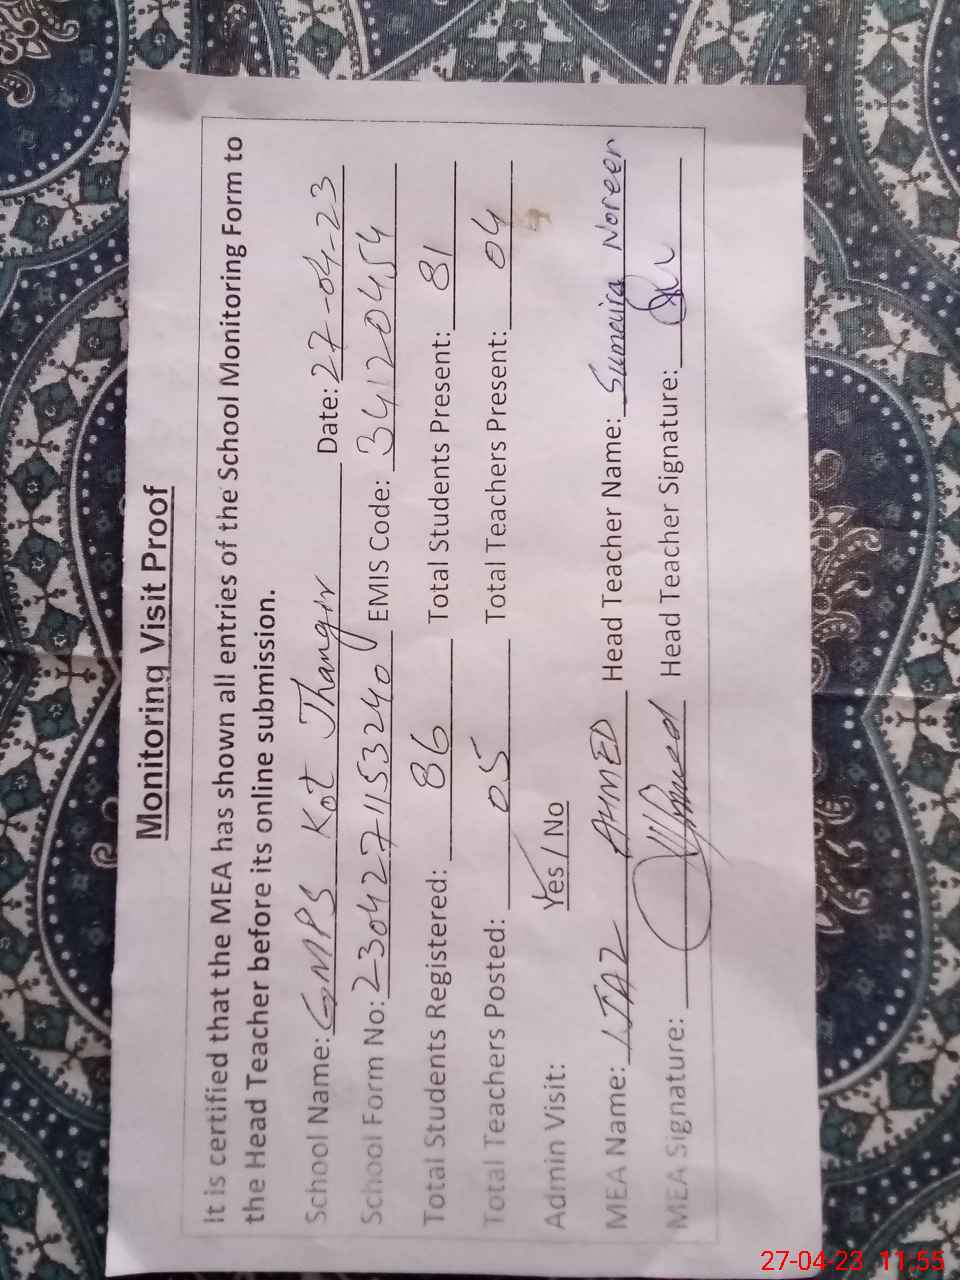 Monitoring Visit Proof
It is certified that the MEA has shown all entries of the School Monitoring Form to
the Head Teacher before its online submission.
School Name: GMPS Kot Jhangir Date: 27-04-23
School Form No: 2304271153240 EMIS Code: 34120454
Total Students Registered: 86 Total Students Present: 81
Total Teachers Posted: 05 Total Teachers Present: 04
Admin Visit: Yes / No
MEA Name: IJAZ AHMED Head Teacher Name: Sumaira Noreen
MEA Signature: Head Teacher Signature:
27-04-23 11:55